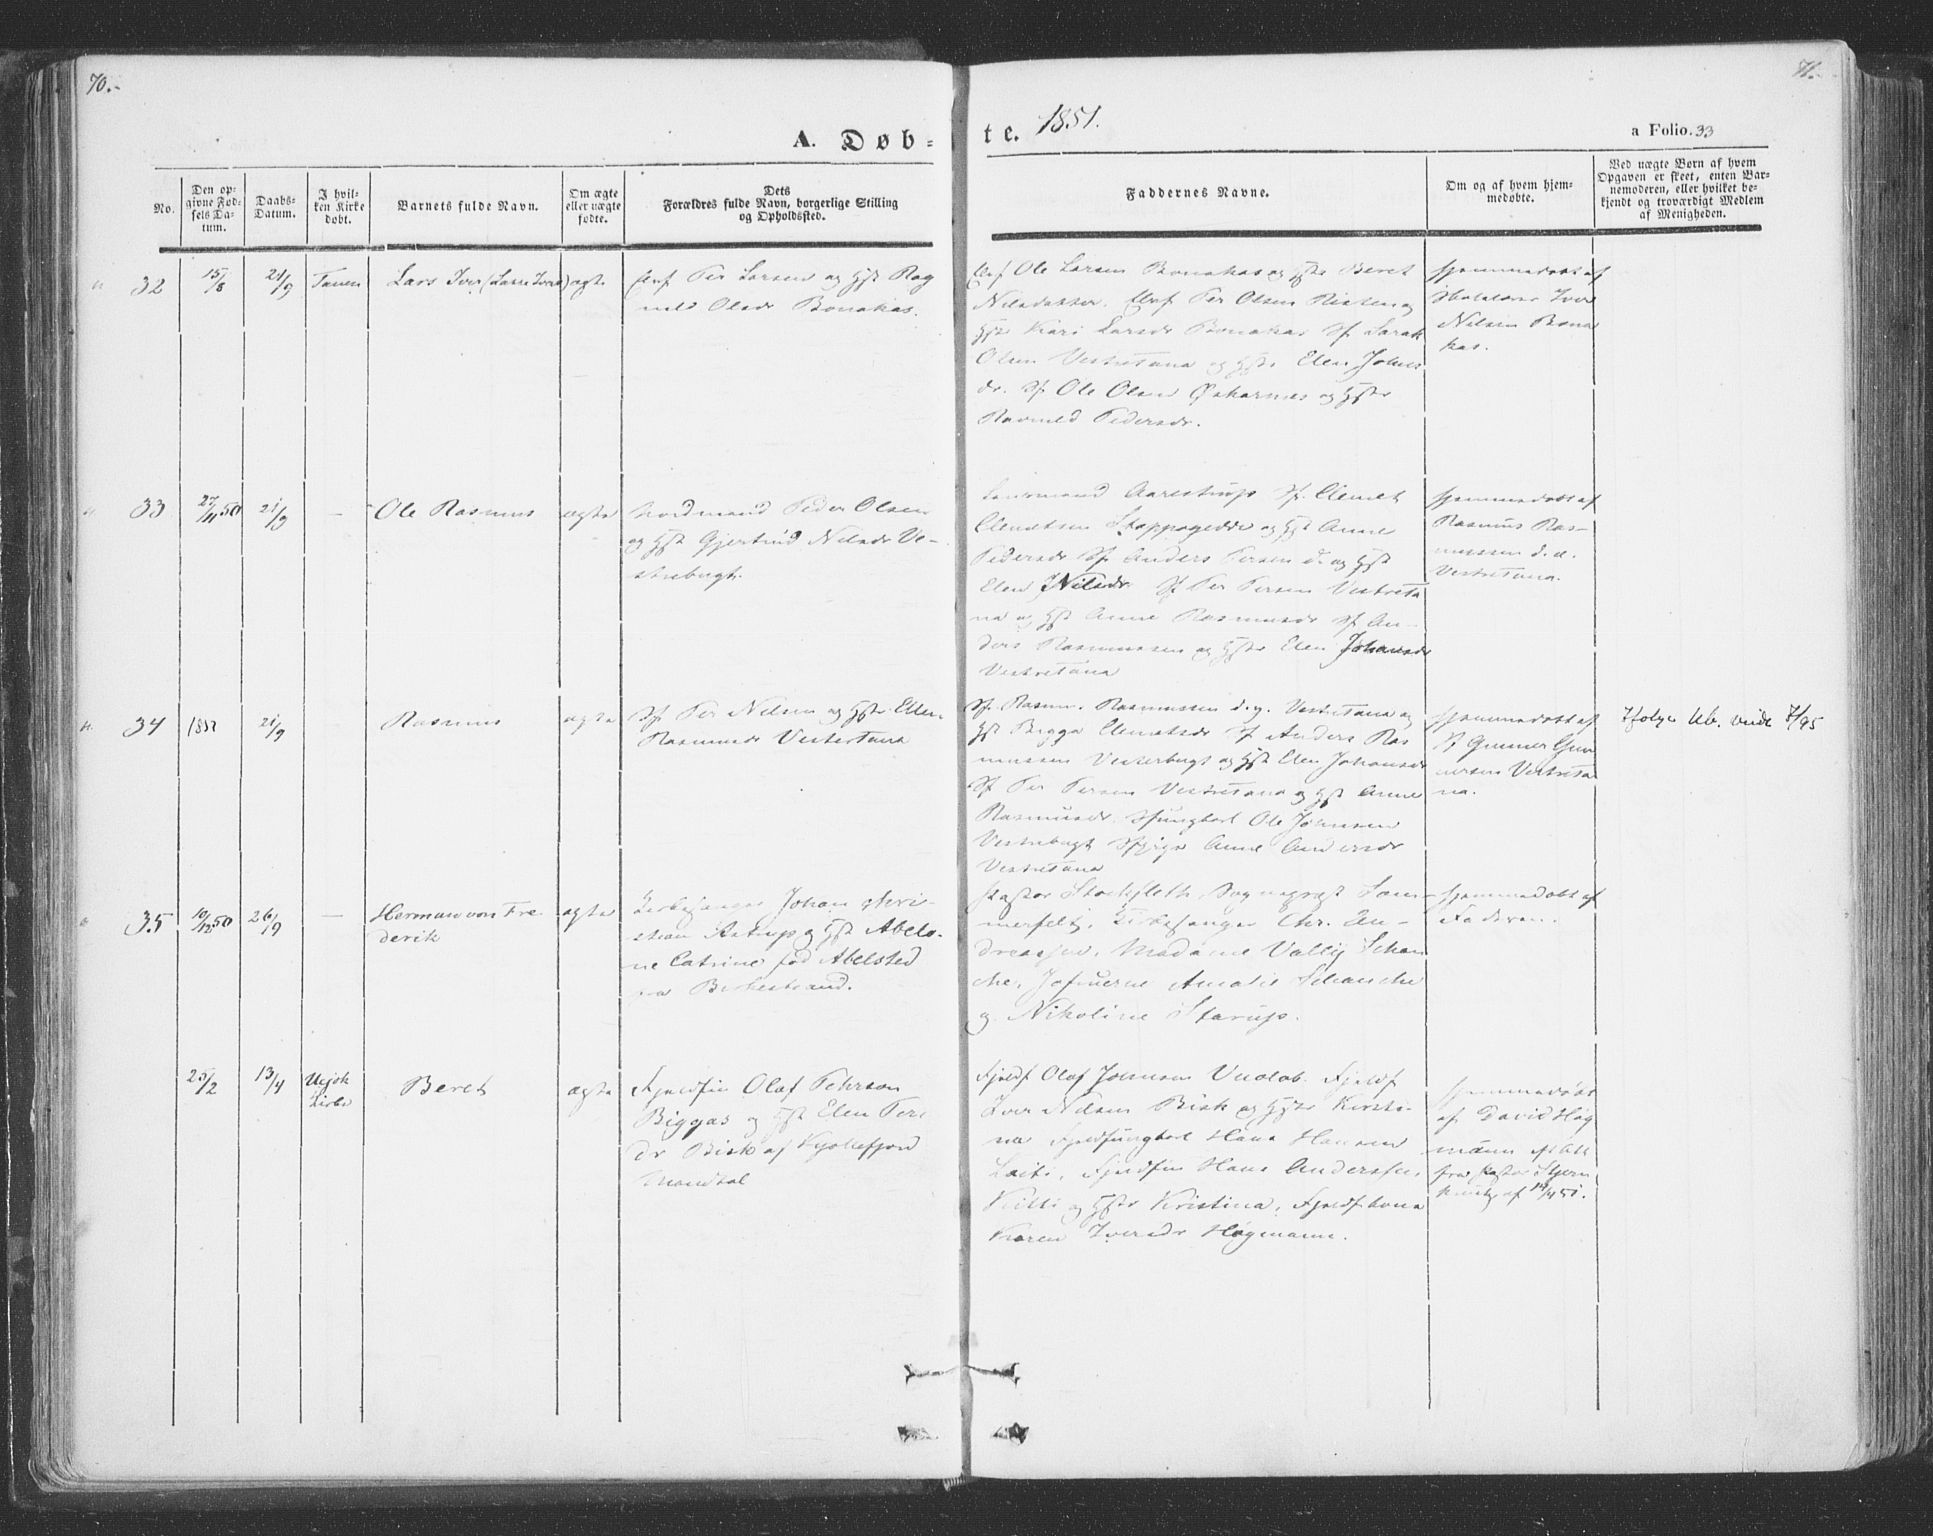 70.-
71.-
A. Døb=
te.
1851.
a Folio. 33
No.
Den op-
givne Fød-
sels Da-
tum.
Daabs-
Datum.
I hvil-
ken Kirke
døbt.
Barnets fulde Navn.
Om ægte
eller uægte
fødte.
Dets
Forældres fulde Navn, borgerlige Stilling
og Opholdssted.
Faddernes Navne.
Om og af hvem hjem-
medøbte.
Ved uægte Børn af hvem
Opgaven er skeet, enten Bar-
nemoderen, eller hvilket be-
kjendt og troværdigt Medlem
af Menigheden.
32
15/8
21/9
Tanen
Lars Iver
ægte
Per Larsen og Hst Rag
nild Olsdr Bonakas.
Ole Larsen Bonakas og Hstr Beret
Nilsdatter. Per Olsen Risten og
Hstr Kari Larsdr Bonakas Sf. Sarak
Olsen Vestretana og Hstr Elen Johns
dr. Sf. Ole Olsen og Hstr
Ravneld Pedersdr.
Hjemmedøbt af
Skolelærer Iver
Nilsen Bona
kas.
33
27/11 50
21/9
—
Ole Rasmus
ægte
Nordmand Peder Olsen
og Hst Gjertrud Nilsdr Ve-
strebugt.
Lensmand Aarestrup Sf. Clemet
Clemetsen Stappogedde og Hst Anne
Pedersdr Sf. Anders Persen d. og Hst
Elen Nilsdr. Sf Per Persen Vestreta
na og Hst Anne Rasmusdr Sf. An-
ders Rasmussen og Hstr Elen Johansdr
Vestretana
Hjemmedøbt af
Rasmus Ras-
mussen d. æ.
Vestretana.
34
1851
21/9
Rasmus
ægte
Sf. Per Nilsen og Hstr Ellen
Rasmusdr Vestertana
Sf. Rasm. Rasmussen d. y. Vestretana og
Hst Bigga Clemetsdr Sf Anders Ras
mussen Vesterbugt og Hst Elen Johansdr
Sf Per Persen Vestretana og Hst Anne
Rasmusdr. Sfungkarl Ole Johnsen
Vestrebugt Sfpige Anne Andersdr
Vestretana
Hjemmedøbt af
Sf Gunner Gun
nersen Vestreta
na.
Ifølge kb. viede 7/95
35
10/12 50
26/9
—
Herman von Fre
derik
ægte
Kirkesanger Johan Chri-
stian Astrup og Hst Abelo-
ne Catrine fød Abelsted
fra Birkestrand.
Pastor Stockfleth. Sogneprest Som-
merfelt, Kirkesanger Chr. An-
dreassen, Madame Vally Schan
che, Jofruerne Amalie Schanche
og Nikoline Starup.
Hjemmedøbt af
Faderen.
25/2
13/4
Utsjok
Kirke
Beret
ægte
Fjeldfin Olaf Pehrsen
Biggas og Hst Elen Pers
dr Bisk af Kjøllefjord
Mandtal
Fjeldf Olaf Johnsen Vuolab. Fjeldf
Iver Nilsen Bisk og Hstr Kirsti-
na Fjeldfungkarl Hans Hansen
Laiti, Fjeldfin Hans Andersen
Kitti og Hstr Kristina, Fjeldfkona
Karen Iversdr Høgmann.
Hjemmedøbt
af David Høg
mann
fra Pastor Stjern
af 14/4 51.